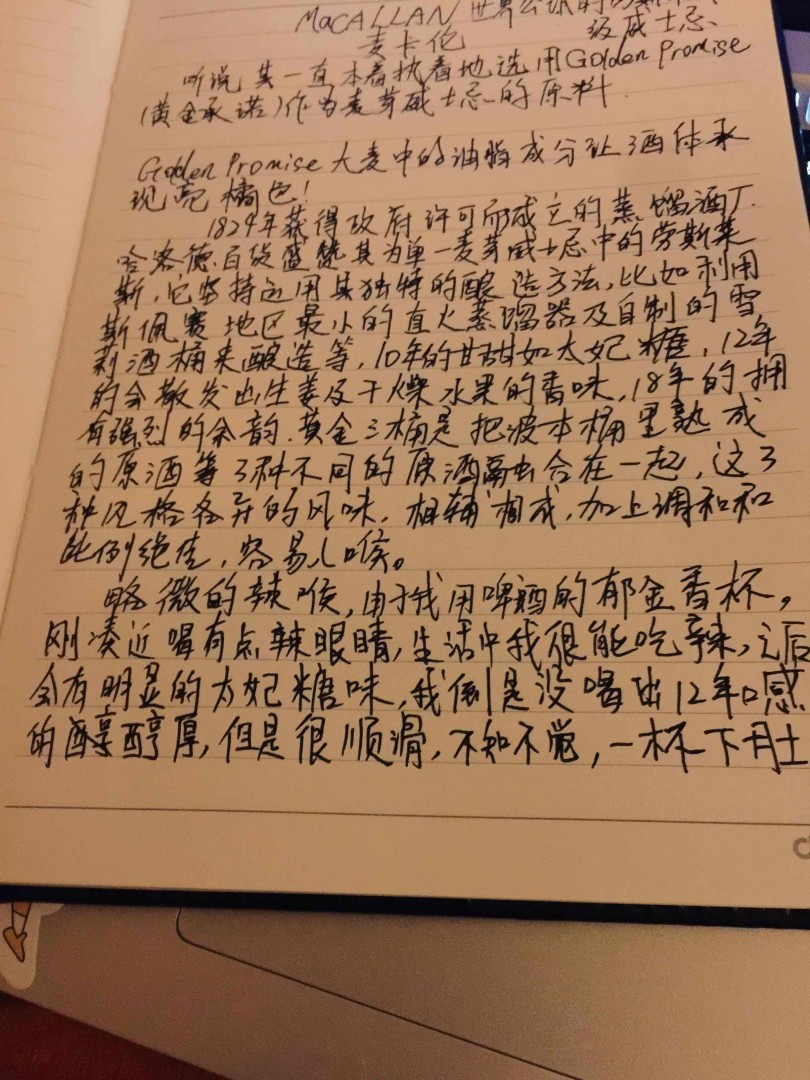 MaCALLAN 世界公认的
麦卡伦 级威士忌
听说其一直本着执着地选用Golden Promise
(黄金承诺)作为麦芽威士忌的原料.
Golden Promise大麦中的油脂成分让酒体承
现亮橘色!
1824年获得政府许可而成立的蒸馏酒厂.
哈洛德百货盛赞其为单一麦芽威士忌中的劳斯莱
斯,它坚持运用其独特的酿造方法,比如利用
斯佩赛地区最小的直火蒸馏器及自制的雪
莉酒桶来酿造等,10年的甘甜如太妃糖,12年
的会散发出生姜及干燥水果的香味,18年的拥
有强烈的余韵.黄金三桶是把波本桶里熟成
的原酒等3种不同的原酒融合在一起,这3
种风格各异的风味,相辅相成,加上调和和
比例绝佳,容易入喉。
略微的辣喉,由于我用啤酒的郁金香杯,
刚凑近喝有点辣眼睛,生活中我很能吃辣,之后
会有明显的太妃糖味,我倒是没喝出12年口感
的醇厚,但是很顺滑,不知不觉,一杯下肚